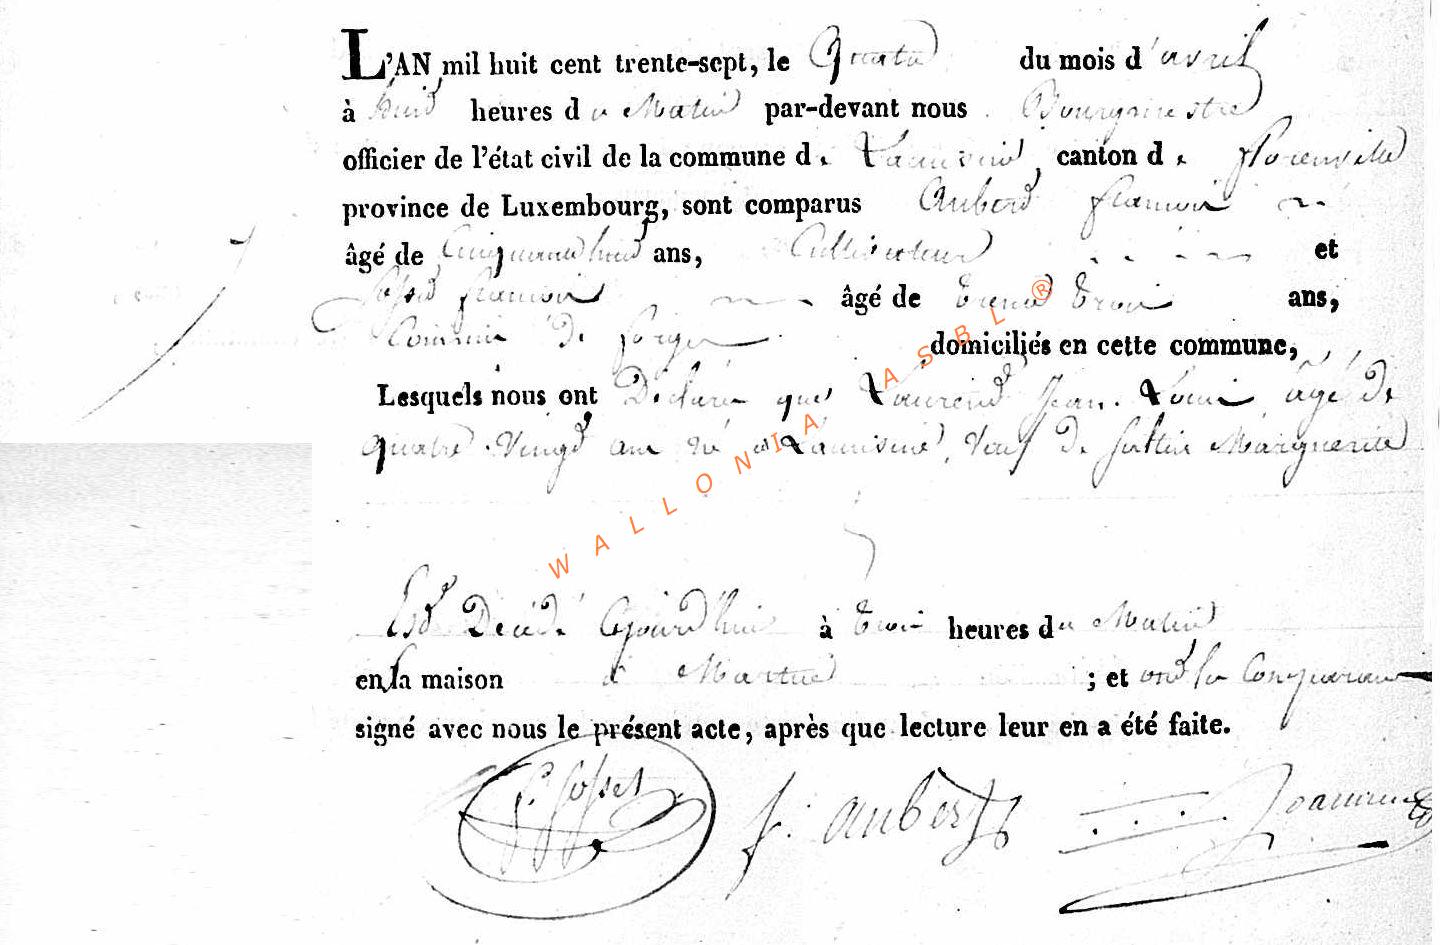 L'AN mil huit cent trente-sept, le quatre du mois d'avril
à huit heures du Matin par-devant nous Bourgmestre
officier de l'état civil de la commune de canton de florenville
province de Luxembourg, sont comparus Aubert francois
âgé de Cinquante huit ans, Cultivateur et
francois âgé de trente trois ans,
Commis de forges domiciliés en cette commune,
Lesquels nous ont Déclaré que Laurent Jean Louis âgé de
quatre vingt ans né a veuf de Marguerite
Est Décédé à trois heures du Matin
en sa maison ; et ont les Comparans
signé avec nous le présent acte, après que lecture leur en a été faite.
f. aubert
WALLONIA ASBL ®